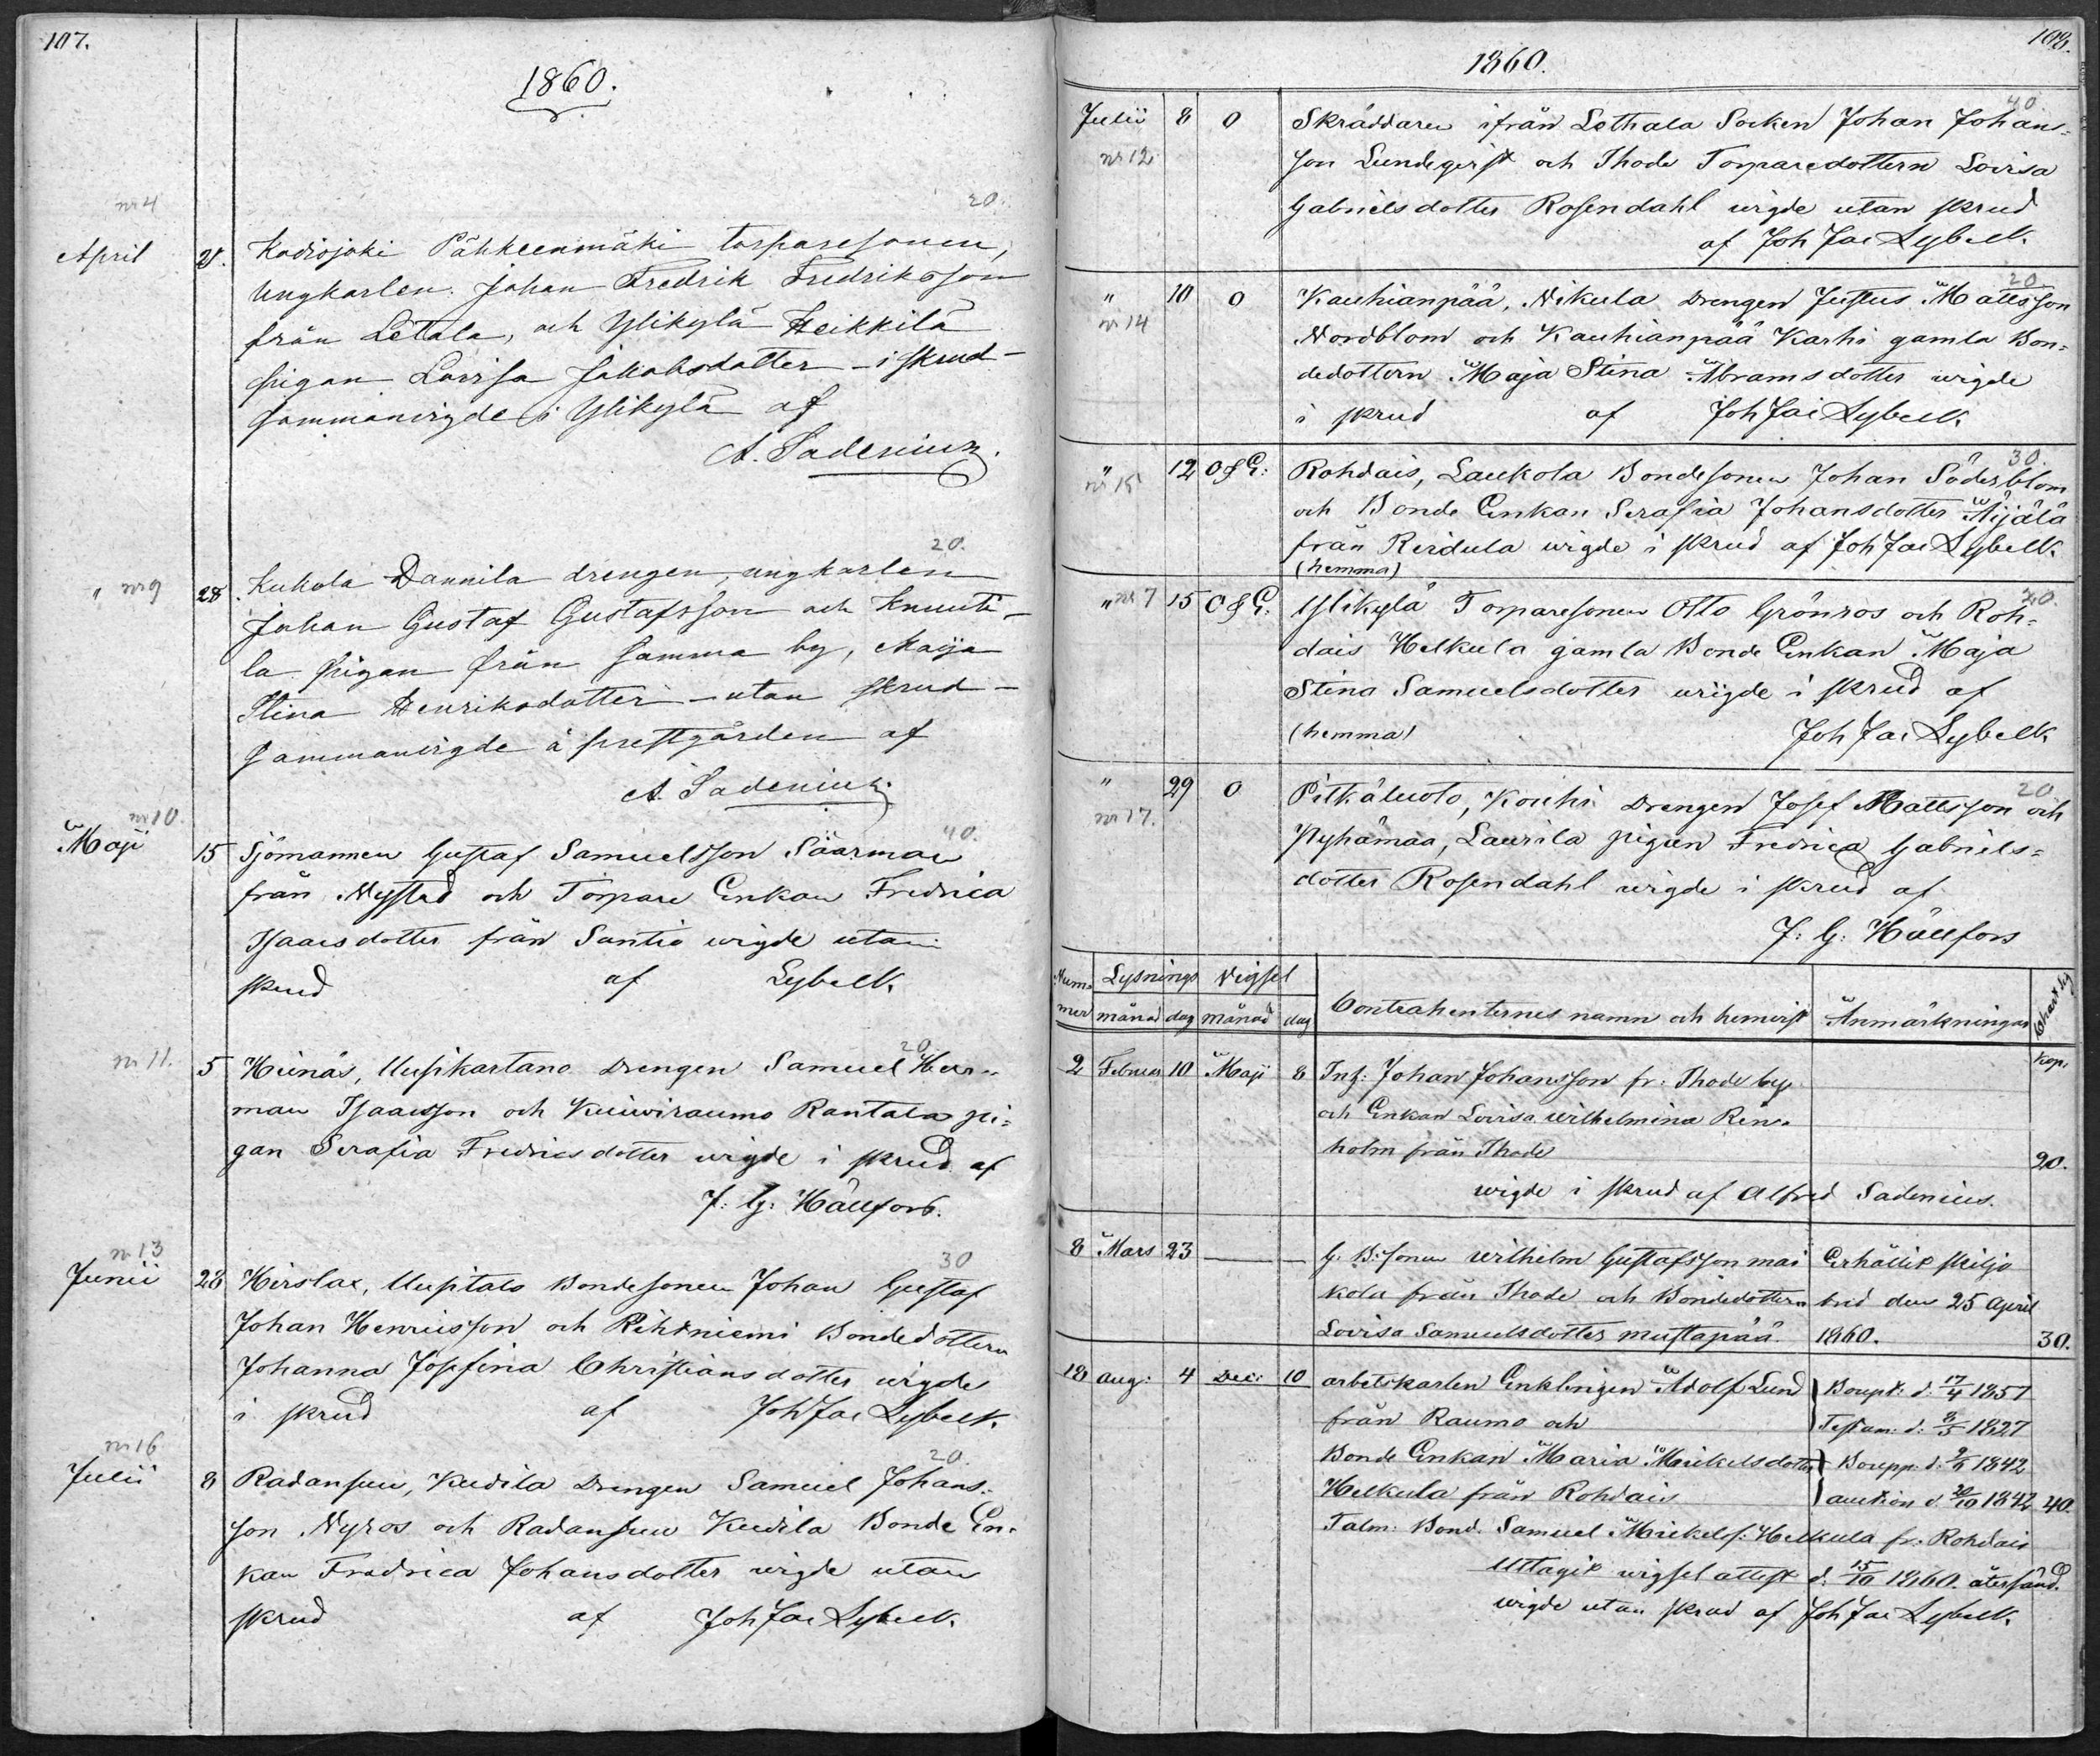 107.
1860.
nr 4
20.
April 21. Kodisjoki Pähkeenmäki torparesonen,
Ungkarlen Johan Fredrik Fredriksson
från Letala, och Ylikylä Heikkilä
pigan Lovisa Jakobsdotter – i skrud –
sammanvigde i Ylikylä af
A. Sadenius.
20.
" nr 9 28 Kukola Dannila drengen, ungkarlen
Johan Gustaf Gustafsson och Knuuti-
la pigan från samma by, Maija
Stina Henriksdotter – utan skrud –
sammanvigde å prestgården af
A. Sadenius.
nr 10.
40.
Maji 15 Sjömannen Gustaf Samuelsson Säärman
från Nystad och Torpare Enkan Fredrica
Isaacsdotter från Santio wigde utan
skrud af Sybelk.
nr 11. 20.
5 Heinäs, Uusikartano Drengen Samuel Her-
man Isaacsson och Kuiwiraumo Rantala pi-
gan Serafia Fredricsdotter wigde i skrud af
J: G: Hällfors.
nr 13 30
Junii 28 Hirslax, Uusitalo Bondesonen Johan Gustaf
Johan Henricsson och Rihtniemi Bondedottern
Johanna Josefina Christiansdotter wigde
i skrud af Joh Jac Sybelk.
nr 16 20.
Julii 8 Radansuu, Keidila Drengen Samuel Johans-
son Nyros och Radansuu Keidila Bonde En-
kan Fredrica Johansdotter wigde utan
skrud af Joh Jac Sybelk.
108.
1860.
40.
Julii 8 0 Skräddaren ifrån Lethala Socken Johan Johans-
nr 12 son Lundeqvist och Thode Torparedottern Lovisa
Gabrielsdotter Rosendahl wigde utan skrud
af Joh Jac Sybelk.
20.
" 10 0 Kauhianpää, Nikula Drengen Justus Mattsson
nr 14 Nordblom och Kauhianpää Karhi gamla Bon-
dedottern Maja Stina Abramsdotter wigde
i skrud af Joh Jac Sybelk.
30.
" 12 O & G: Rohdais, Laukola Bondesonen Johan Söderblom
nr 15 och Bonde Enkan Serafia Johansdotter Äijälä
från Reidula wigde i skrud af Joh Jac Sybelk.
(hemma)
20.
" nr 7 15 O & G. Ylikylä Torparesonen Otto Grönros och Roh-
dais Helkula gamla Bonde Enkan Maja
Stina Samuelsdotter wigde i skrud af
(hemma) Joh Jac Sybelk
20
" 29 0 Pitkäluoto, Kouhi Drengen Josef Mattsson och
nr 17. Pyhämaa, Laurila pigan Fredrica Gabriels-
dotter Rosendahl wigde i skrud af
J: G: Hällfors
Num- Lysnings Vigsel
mer månad dag månad dag Contrahenternes namn och hemvist Anmärkningar
Kop.
2 Februar 10 Maji 8 Inh: Johan Johansson fr: Thode by
och Enkan Lovisa Wilhelmina Ren-
holm från Thode 20.
wigde i skrud af Alfred Sadenius.
8 Mars 23 — G. B:sonen Wilhelm Gustafsson mai Erhållit skiljo
kola från Thode och Bondedottern bref den 25 April
Lovisa Samuelsdotter mustapää. 1860. 30.
18 aug: 4 Dec: 10 arbetskarlen Enklingen Adolf Lund Boupt: d: 17/4 1857
från Raumo och Testam: d: 8/5 1827
Bonde Enkan Maria Mickelsdotter Boupp: d: 9/9 1842
Helkula från Rohdais auction d: 20/10 1842 40.
Talm: Bond. Samuel Mickelss: Helkula fr: Rohdais
Uttagit wigsel attest d: 15/10 1860. återsänd.
wigde utan skrud af Joh Jac Sybelk.